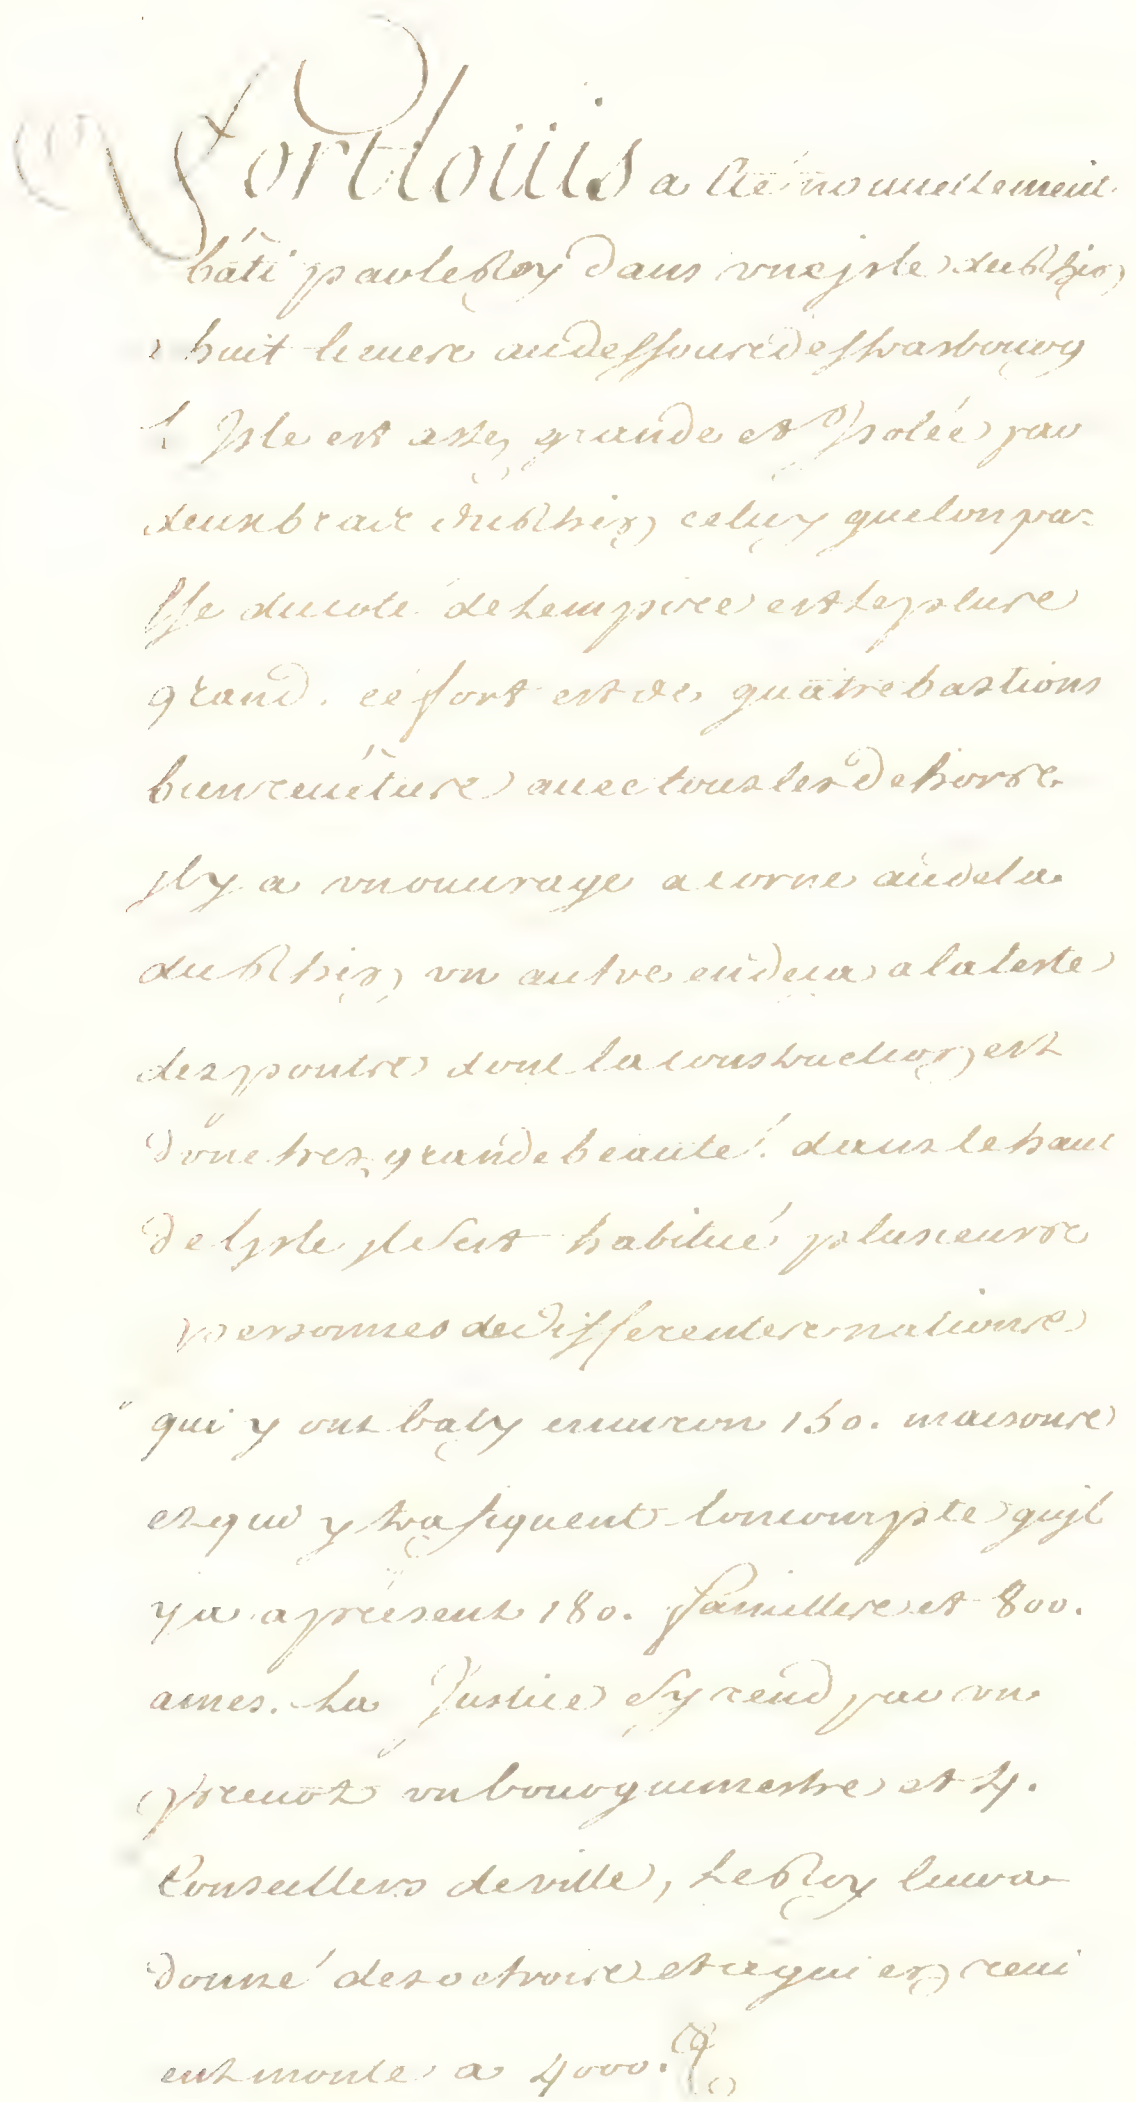 Fortloüis a été nouuellement
bâti par le Roy dans vne jsle du Rhin
a huit lieues au dessous de strasbourg
l'Jsle est assez grande et Jsolée par
deux bras du Rhin, celuy que lon pa-
sse du coté de Lempire est Le plus
grand. ce fort est de quatre bastions
bien reuétus auec tous les dehors.
jl y a vn ouurage a corne audela
du Rhin, vn autre endeca a la teste
des ponts dont la construction est
d'vne tres grande beauté. dans le haut
de ljsle jl sest habitué plusieurs
personnes de differentes nations
qui y ont baty enuiron 150. maisons
et qui y trafiquent lon compte qujl
y a apresent 180. familles et 800.
ames. La Justice sy rend par vn
preuot vn bourguemestre et 4.
Conseillers de ville, Le Roy leur a
donné des octrois et ce qui en reui
ent monte a 4000.